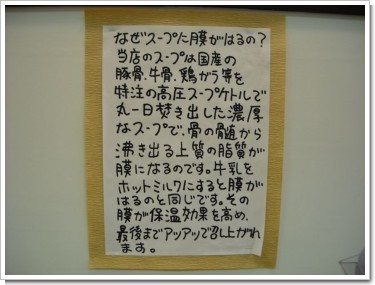 なぜスープに膜がはるの？
当店のスープは国産の
豚骨．牛骨．鶏ガラ等を
特注の高圧スープケトルで
丸一日焚き出した濃厚
なスープで．骨の髄から
沸き出る上質の脂質が
膜になるのです。牛乳を
ホットミルクにすると膜が
はるのと同じです。その
膜が保温効果を高め．
最後までアツアツで召し上がれ
ます。